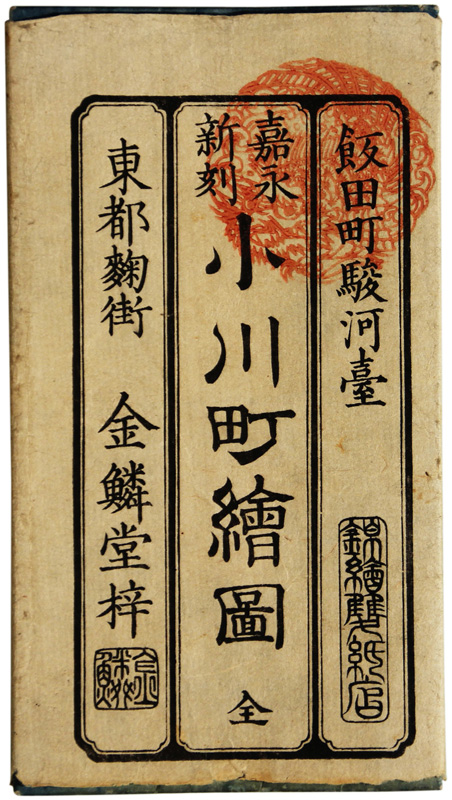 飯田町駿河臺
錦繪雙紙店
嘉永
新刻
小川町繪圖
全
東都麴街 金鱗堂梓